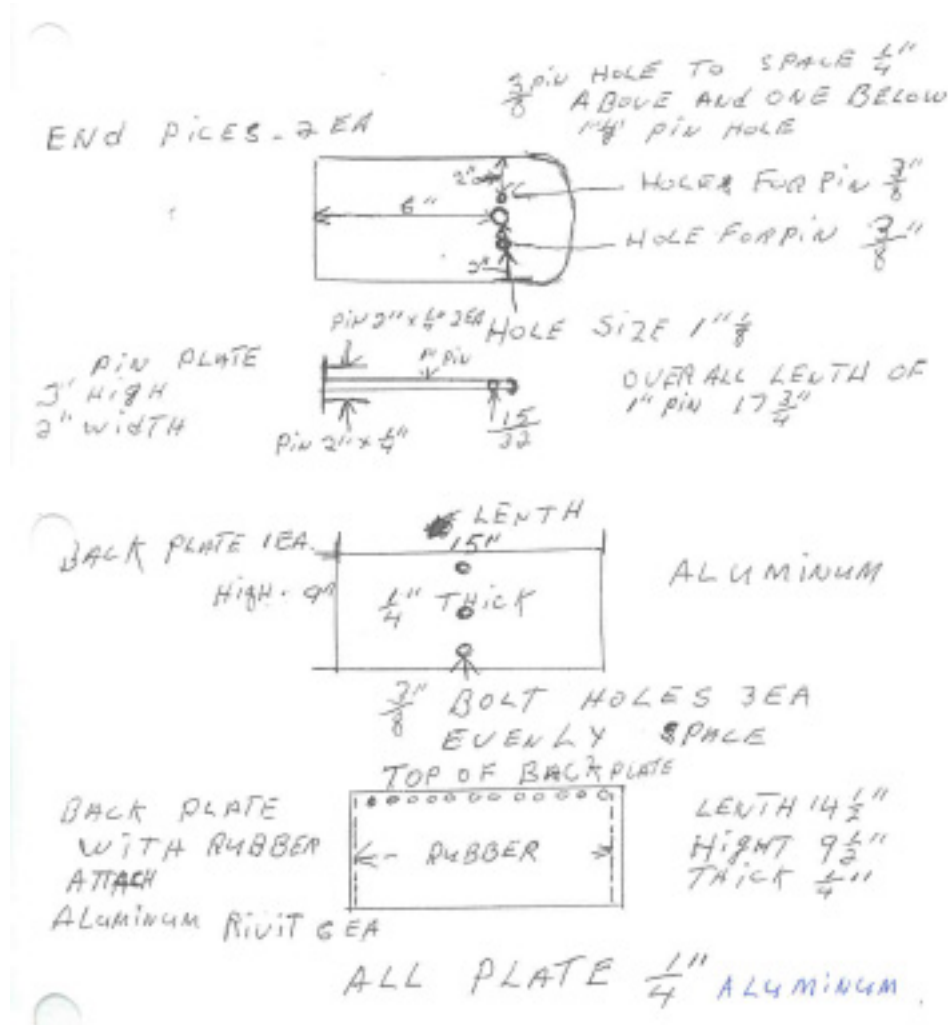 3/8 PiN HOLE TO SPACE 1/4"
ABOVE ANd ONE BELOW
1"1/8 PiN HOLE
ENd PiCES - 2 EA
2"
HOLES FOR PiN 3/8
6"
HOLE FOR PiN 3/8"
2"
PiN 2" x 1/4" 2EA
HOLE SiZE 1"1/8
PiN PLATE
1" PiN
3" HigH
2" WidTH
OVERALL LENTH OF
1" PiN 17 3/4"
PiN 2" x 1/4"
15/32
LENTH
15"
BACK PLATE 1EA.
HigH - 9"
1/4" THiCK
ALUMiNUM
3/8" BOLT HOLES 3EA
EVENLY SPACE
TOP OF BACKPLATE
BACK PLATE
WiTH RUBBER
ATTACH
ALUMiNUM RiViT 6 EA
RUBBER
LENTH 14 1/2"
HigHT 9 1/2"
THiCK 1/4"
ALL PLATE 1/4" ALUMiNUM